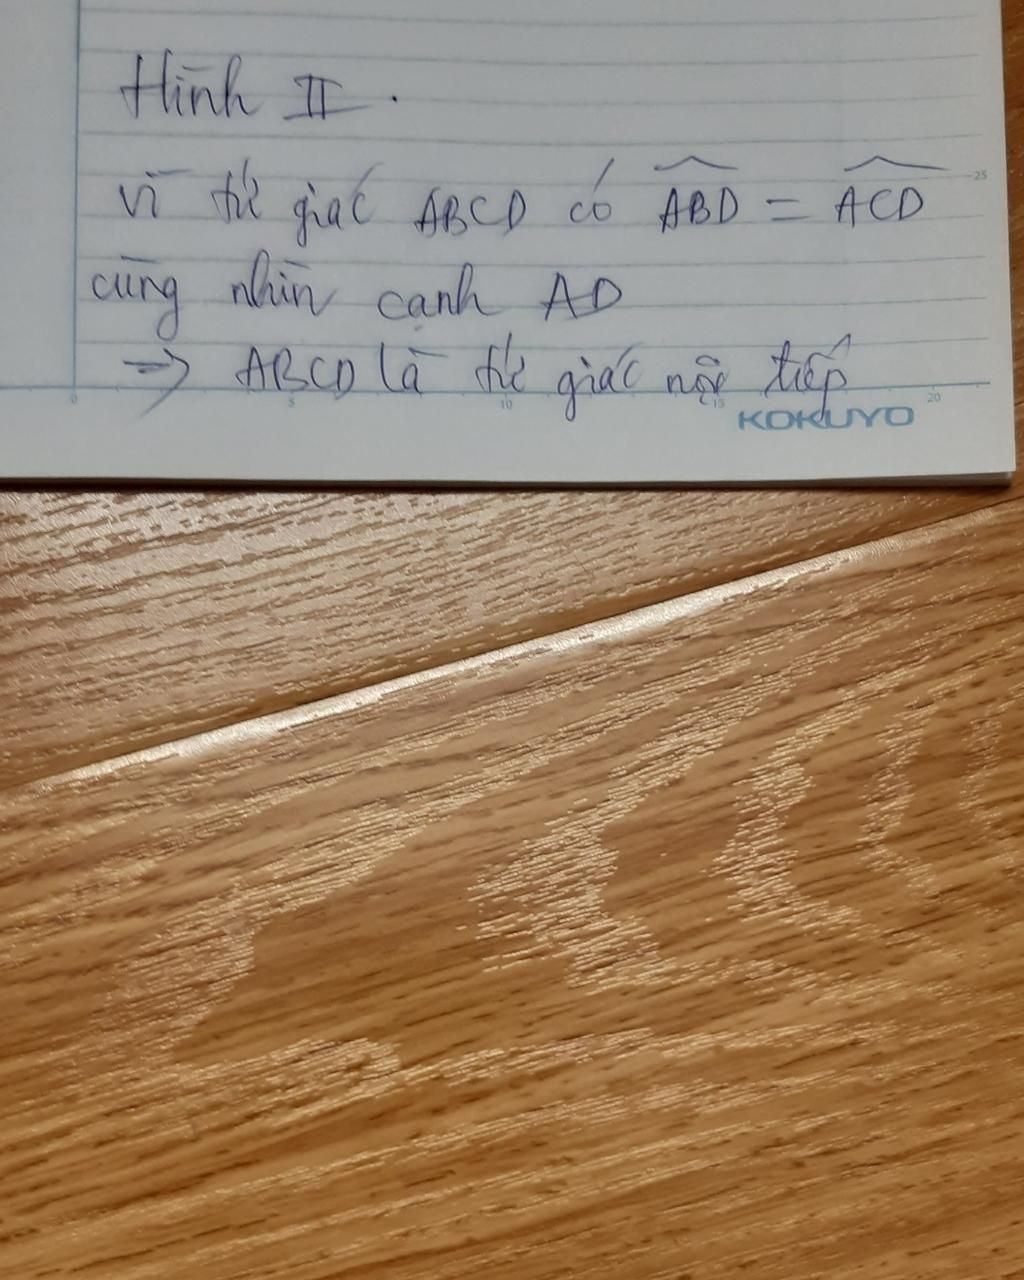 Hình II.
25
Vì tứ giác ABCD có \widehat{ABD} = \widehat{ACD}
cùng nhìn cạnh AD
=> ABCD là tứ giác nội tiếp
0 5 10 15 20
KOKUYO